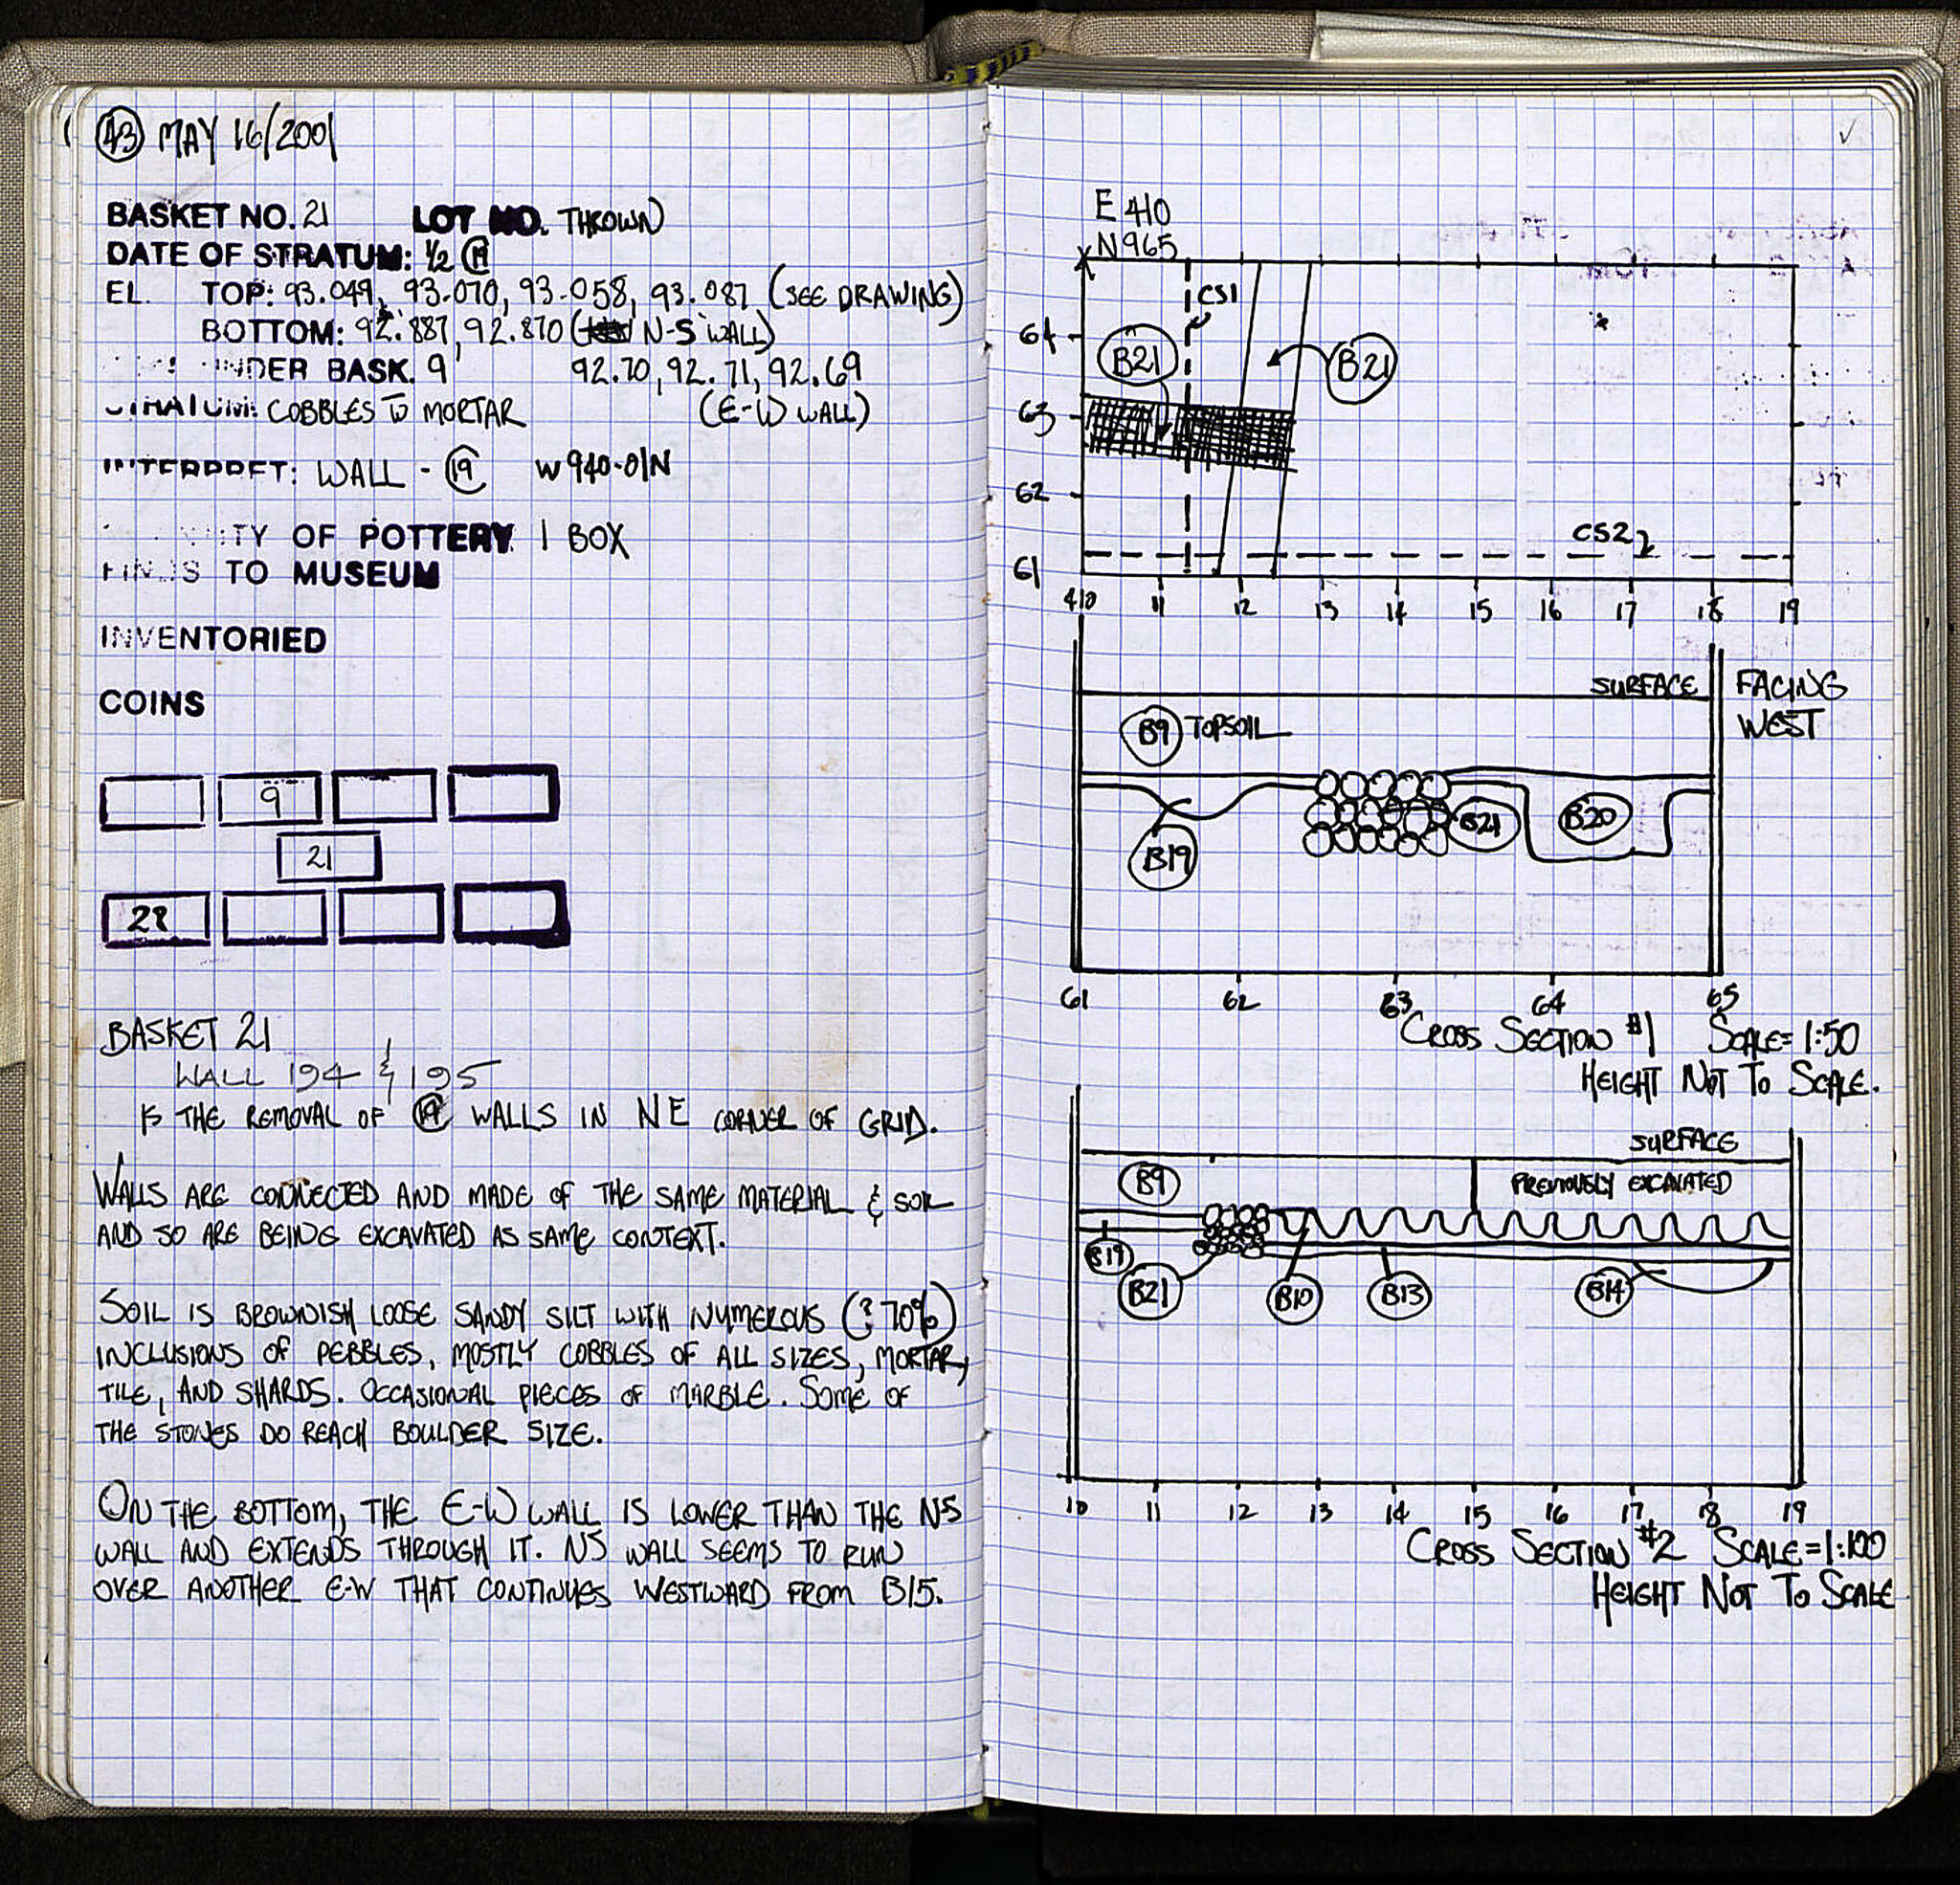 43 MAY 16/2001
BASKET NO. 21 LOT NO. THROWN
DATE OF STRATUM: 1/2 19
EL. TOP: 93.049, 93.070, 93.058, 93.087 (SEE DRAWING)
BOTTOM: 92.887, 92.870 (N-S WALL)
UNDER BASK. 9 92.70, 92.71, 92.69
STRATUM: COBBLES TO MORTAR (E-W WALL)
INTERPRET: WALL - 19 W940-01N
OF POTTERY 1 BOX
FINDS TO MUSEUM
INVENTORIED
COINS
9
21
28
BASKET 21
WALL 194 & 195
IS THE REMOVAL OF 19 WALLS IN NE CORNER OF GRID.
WALLS ARE CONNECTED AND MADE OF THE SAME MATERIAL & SOIL
AND SO ARE BEING EXCAVATED AS SAME CONTEXT.
SOIL IS BROWNISH LOOSE SANDY SILT WITH NUMEROUS (? 70%)
INCLUSIONS OF PEBBLES, MOSTLY COBBLES OF ALL SIZES, MORTAR,
TILE, AND SHARDS. OCCASIONAL PIECES OF MARBLE. SOME OF
THE STONES DO REACH BOULDER SIZE.
ON THE BOTTOM, THE E-W WALL IS LOWER THAN THE NS
WALL AND EXTENDS THROUGH IT. NS WALL SEEMS TO RUN
OVER ANOTHER E-W THAT CONTINUES WESTWARD FROM B15.
E 410
N965
CS1
64
B21 B21
63
62
CS2
61
410 11 12 13 14 15 16 17 18 19
SURFACE FACING
WEST
B9 TOPSOIL
B21 B20
B19
61 62 63 64 65
CROSS SECTION #1 SCALE= 1:50
HEIGHT NOT TO SCALE.
SURFACE
B9 PREVIOUSLY EXCAVATED
B19
B21 B10 B13 B14
10 11 12 13 14 15 16 17 18 19
CROSS SECTION #2 SCALE=1:100
HEIGHT NOT TO SCALE